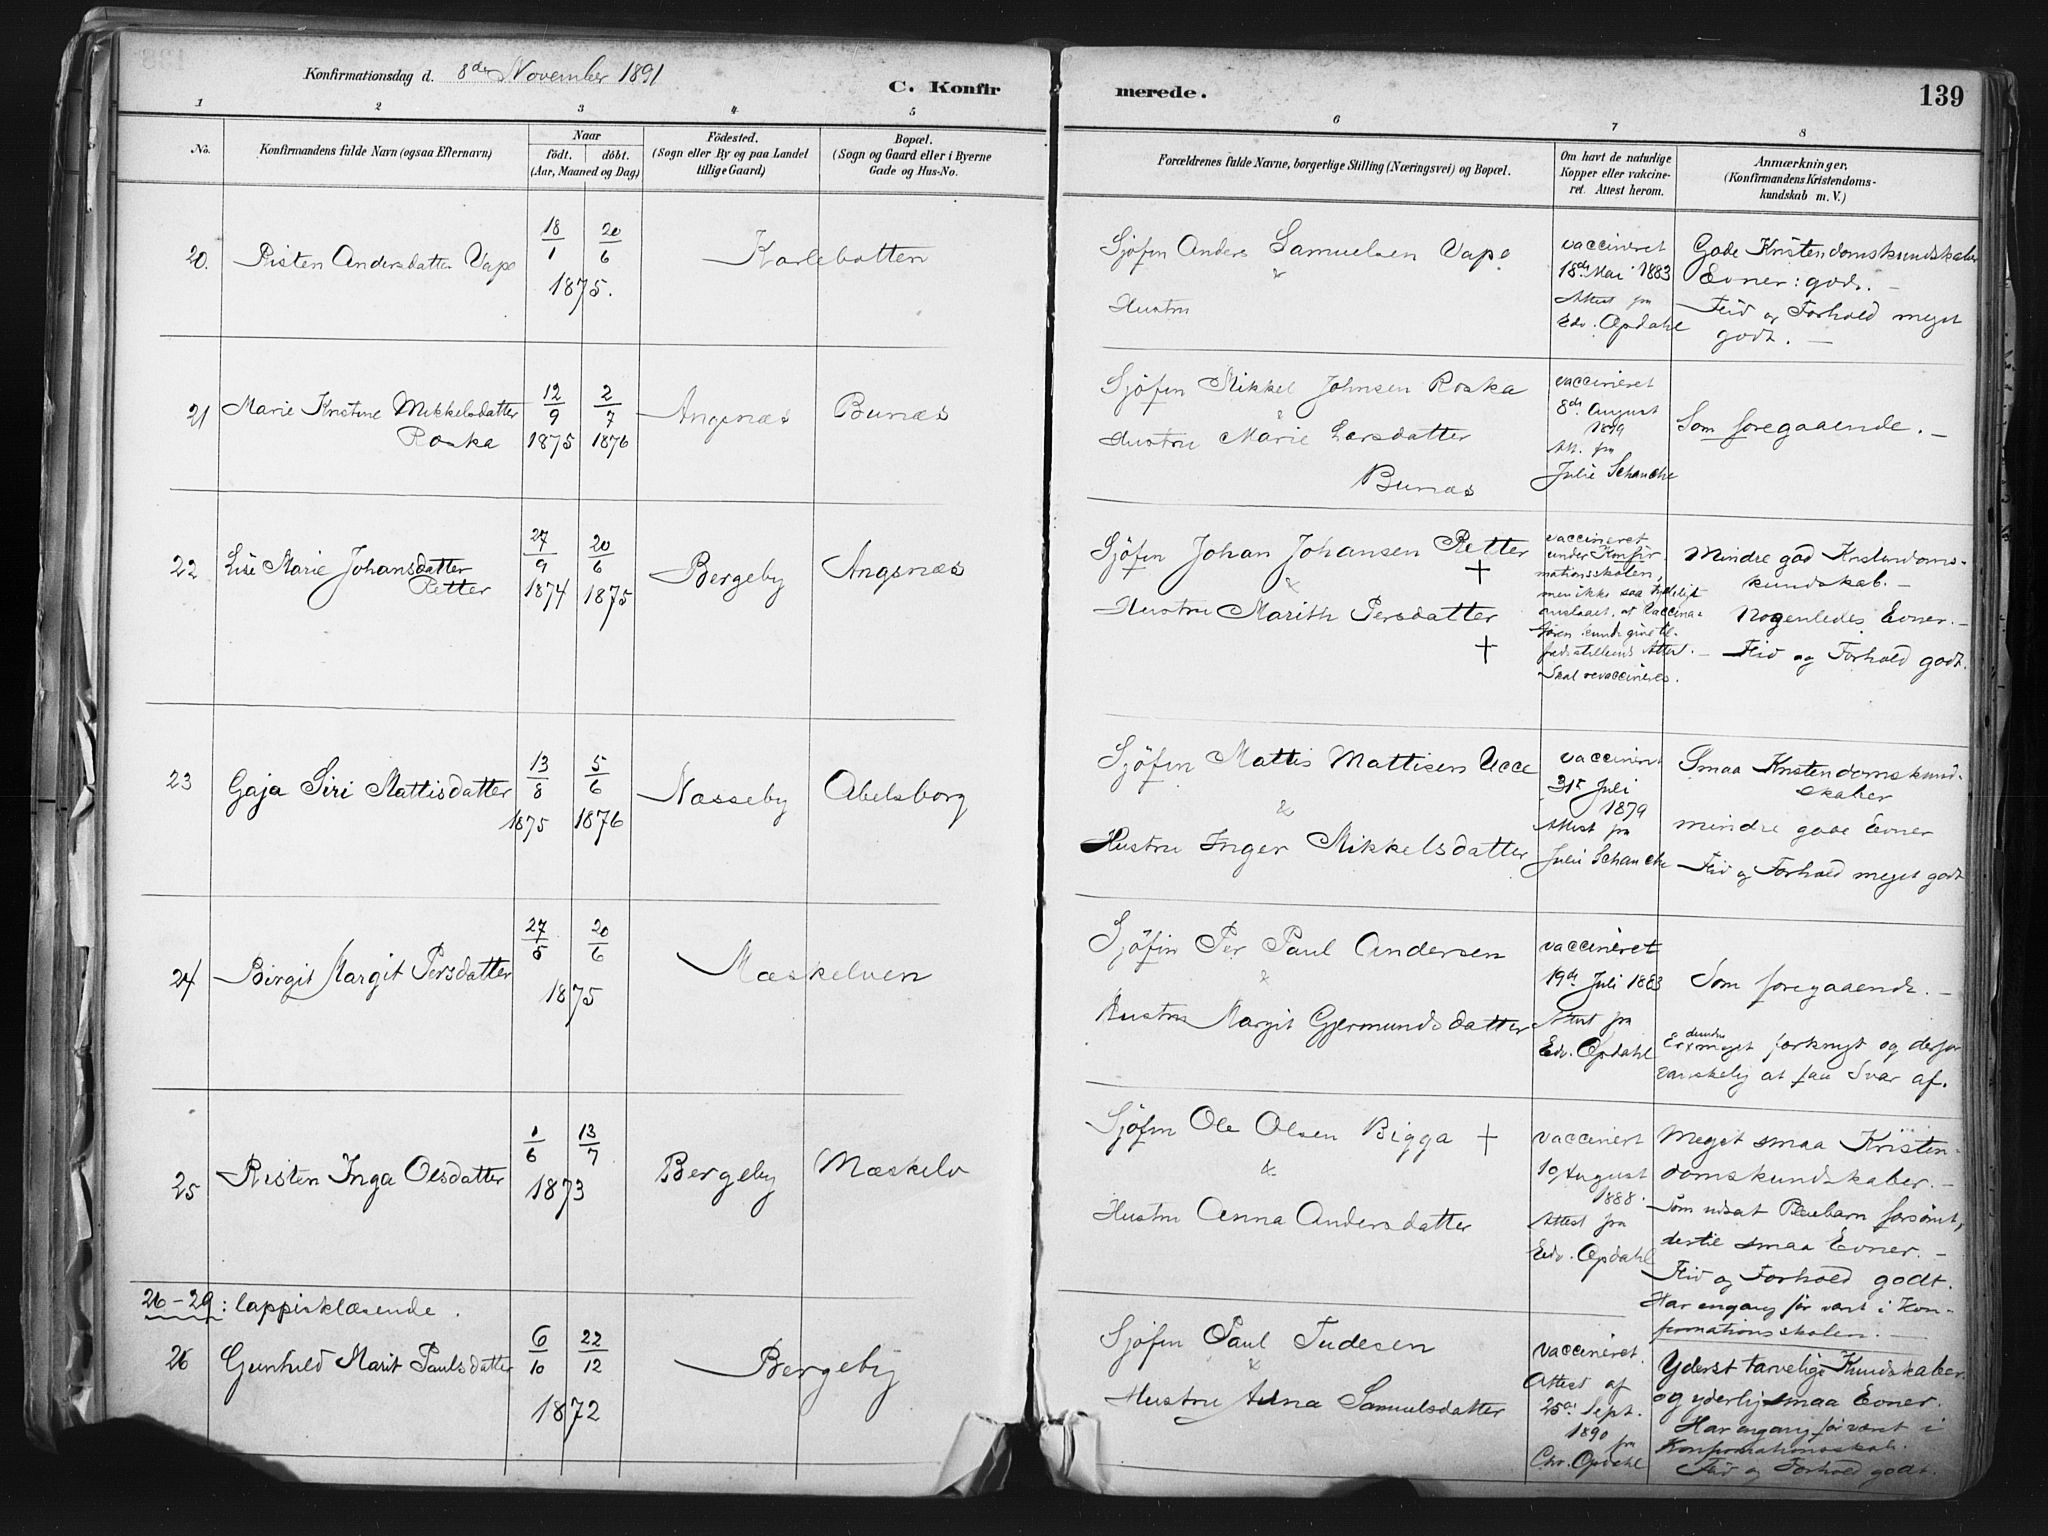 139
Konfirmationsdag d. 8de November 1891
C. Konfirmerede.
1 2 3 4 5 6 7 8
No.
Konfirmandens fulde Navn (ogsaa Efternavn)
Naar
födt. döbt.
(Aar, Maaned og Dag)
Födested.
(Sogn eller By og paa Landet
tillige Gaard)
Bopæl.
(Sogn og Gaard eller i Byerne
Gade og Hus-No.
Forældrenes fulde Navne, borgerlige Stilling (Næringsvei) og Bopæl.
Om havt de naturlige
Kopper eller vakcine-
ret. Attest herom.
Anmærkninger,
(Konfirmandens Kristendoms-
kundskab m. V.)
20.
Risten Andersdatter Vape
18/1 20/6
1875.
Karlebotten
Sjöfin Anders Samuelsen Vape
&
Hustru
vaccineret
18de Mai 1883
Attest fra
Edv. Opdahl
Gode Kristendomskundskaber
Evner: gode. —
Flid og Forhold meget
godt. —
21
Marie Kristine Mikkelsdatter
Roska
12/9 2/7
1875 1876
Angsnæs
Bunæs
Sjöfin Mikkel Johnsen Roska
&
Hustru Marie Larsdatter
Bunæs
vaccineret
8de August
1879
Att. fra
Julie Schanche
Som foregaaende. —
22
Lise Marie Johansdatter
Retter
27/9 20/6
1874 1875
Bergeby
Angsnæs
Sjöfin Johan Johansen Retter
+
&
Hustru Marith Persdatter
+
vaccineret
under Konfir-
mationsskolen,
men ikke saa tydeligt
anslaaet, at Vaccina-
tören kunde give til-
fredsstillende Attest. —
Skal revaccineres.
Mindre god Kristendoms-
kundskab. —
Nogenledes Evner. —
Flid og Forhold godt.
23
Gaja Siri Mattisdatter
13/8 5/6
1875 1876
Næsseby
Abelsborg
Sjöfin Mattis Mattisen Ucce
&
Hustru Inger Mikkelsdatter
vaccineret
31te Juli
1879
Attest fra
Julie Schanche
Smaa Kristendomskund-
skaber
mindre gode Evner
Flid og Forhold meget godt
24
Birgit Margit Persdatter
27/5 20/6
1875
Mæskelven
Sjöfin Per Paul Andersen
&
Hustru Margit Gjermundsdatter
vaccineret
19de Juli 1883
Attest fra
Edv. Opdahl
Som foregaaende. —
Er x meget forknyt og derfor
vanskelig at faa Svar af.
25
Risten Inga Olsdatter
1/6 13/7
1873
Bergeby
Mæskelv
Sjöfin Ole Olsen Bigga +
&
Hustru Anna Andersdatter
vaccinert
10 August
1888.
Attest fra
Edv. Opdahl
Meget smaa Kristen-
domskundskaber. —
Som udsat Pleiebarn forsömt,
dertil smaa Evner. —
Flid og Forhold godt.
Har engang før vært i Kon-
firmationsskolen. —
26-29: lappisklæsende.
26
Gunhild Marit Paulsdatter
6/10 22/12
1872
Bergeby
Sjöfin Paul Tudesen
&
Hustru Anna Samuelsdatter
vaccineret.
Attest af
25de Sept.
1890
fra
Chr. Opdahl
Yderst tarvelige Kundskaber
og yderlig smaa Evner.
Har engang før været i
Konfirmationsskole.
Flid og Forhold godt.